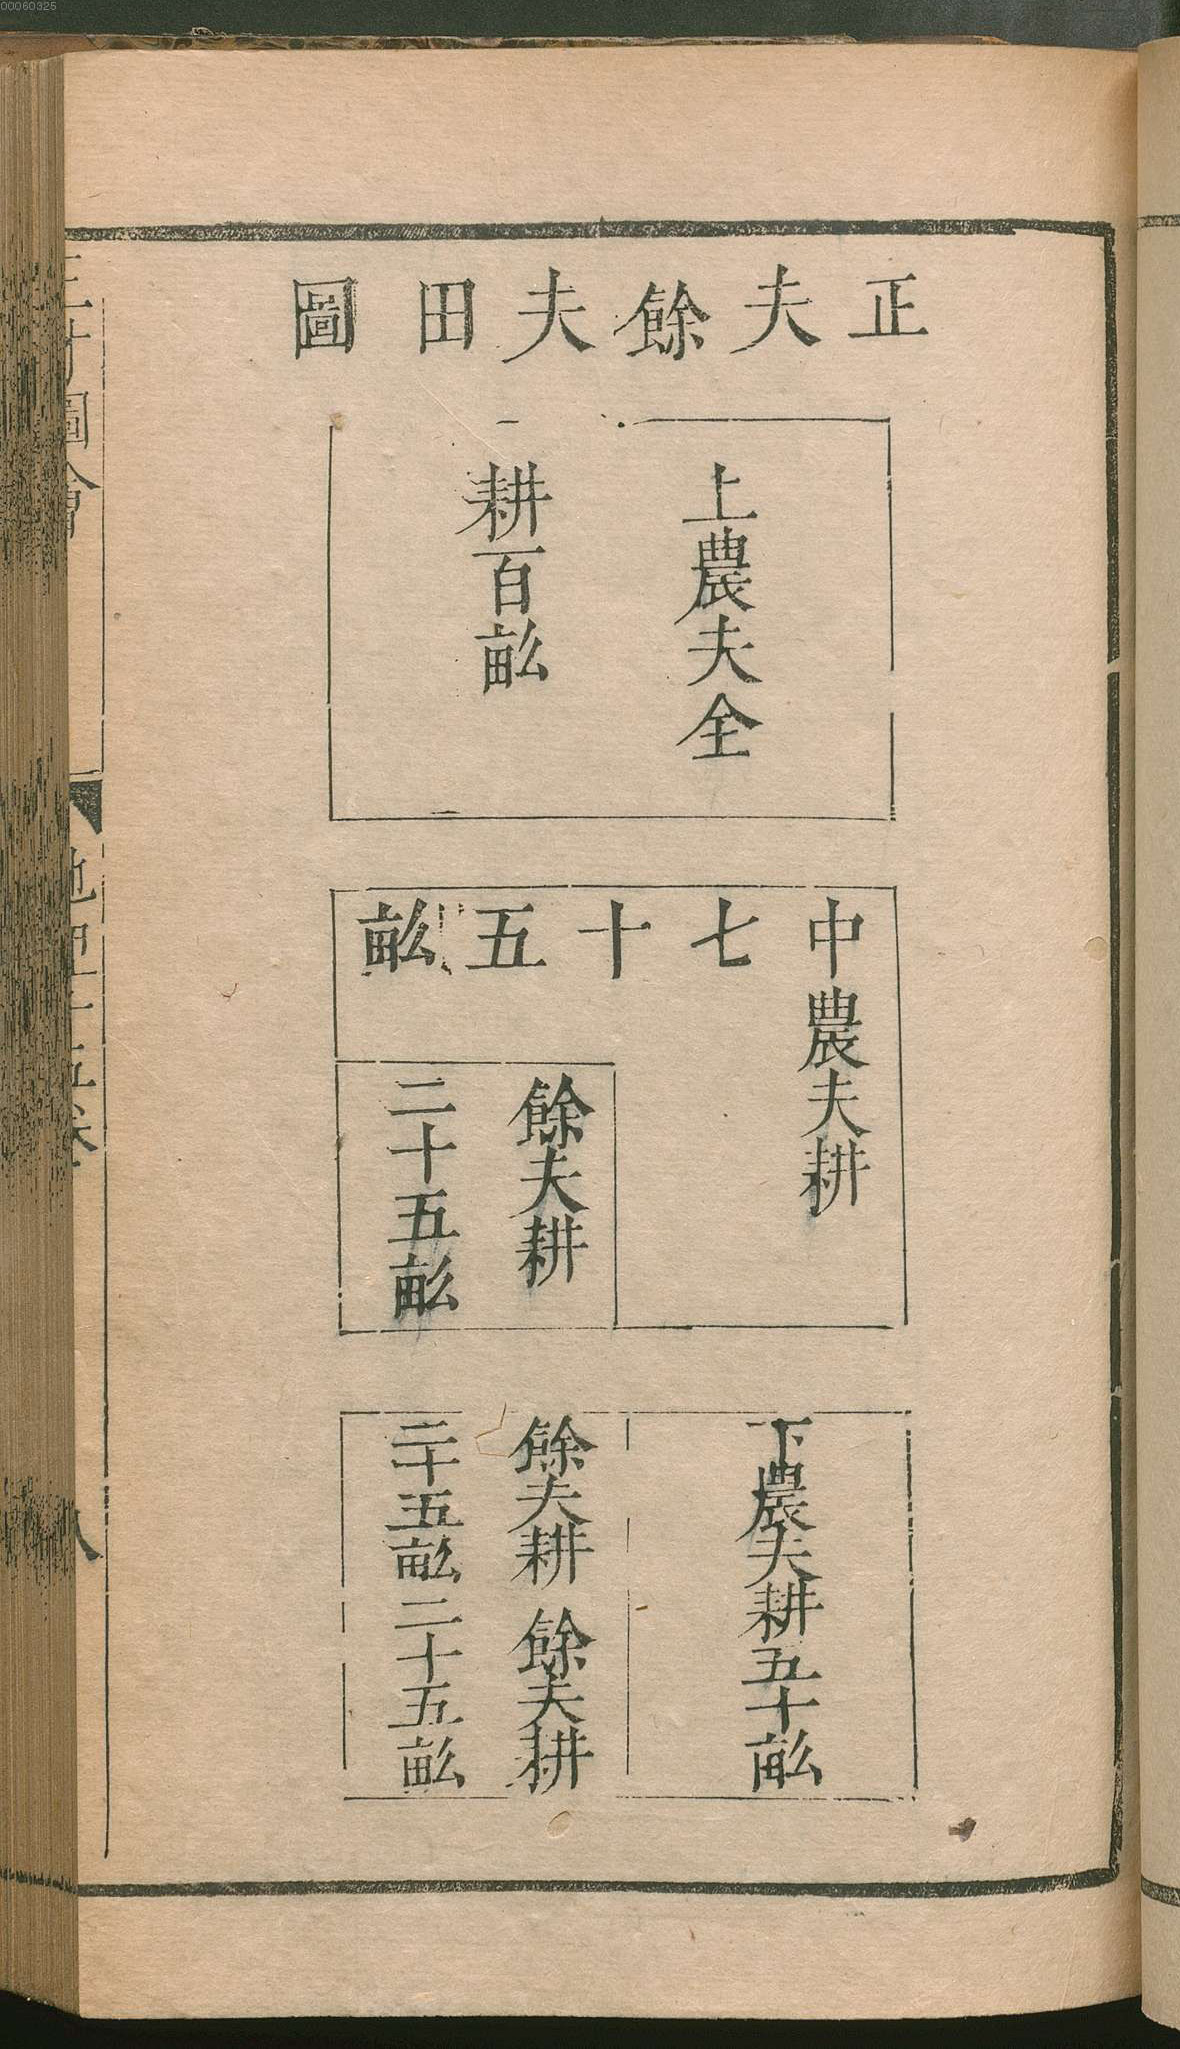 00060325
正夫餘夫田圖
上農夫全
耕百畝
中農夫耕
七十五畝
餘夫耕
二十五畝
下農夫耕五十畝
餘夫耕
二十五畝
餘夫耕
二十五畝
三才圖會
地理十五卷
八